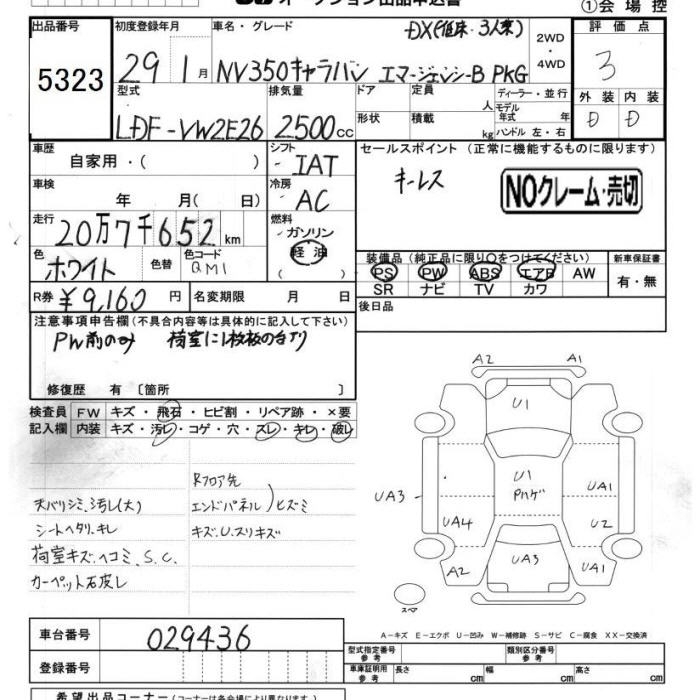 オークション出品申込書
①会場控
出品番号 初度登録年月 車名・グレード DX(低床・3人乗) 2WD・4WD 評価点
5323 29 1月 NV350キャラバン エマージェンシーB PKG 3
型式 排気量 ドア 定員 人 ディーラー・並行 外装 内装
LDF-VW2E26 2500cc 形状 積載 kg モデル年式 年 ハンドル 左・右 D D
車歴 自家用・( ) シフト IAT セールスポイント (正常に機能するものに限ります)
車検 年 月( 日) 冷房 AC キーレス NOクレーム・売切
走行 20万7千652km 燃料 ガソリン 軽油
色 ホワイト 色替 色コード QM1 装備品 (純正品に限り○をつけてください) 新車保証書
PS PW ABS エアB AW 有・無
SR ナビ TV カワ
R券 ¥9,160円 名変期限 月 日 後日品
注意事項申告欄(不具合内容等は具体的に記入して下さい)
PW前のみ 荷室に1枚板の台アリ
修復歴 有〔箇所 〕
検査員 FW キズ・飛石・ヒビ割・リペア跡・×要
記入欄 内装 キズ・汚レ・コゲ・穴・スレ・キレ・破レ
Rフロア先
天バリシミ、汚レ(大) エンドパネル)ヒズミ
シートヘタリ、キレ キズ、U、スリキズ
荷室キズ、ヘコミ、S、C
カーペット石皮レ
A2 A1
U1
U1
UA3 PハゲUA1
UA4 U2
A2 UA3 UA1
スペア
A-キズ E-エクボ U-凹み W-補修跡 S-サビ C-腐食 XX-交換済
車台番号 029436 型式指定番号 参考 類別区分番号 参考
登録番号 車庫証明用 参考 長さ cm 幅 cm 高さ cm
希望出品コーナー(コーナーは各会場により異なります)